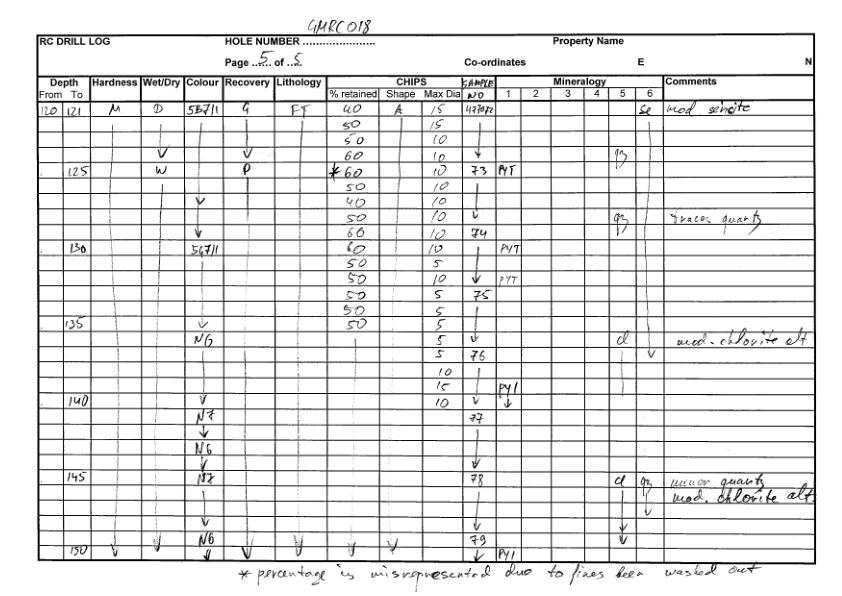 GMRC018
RC DRILL LOG HOLE NUMBER ........................ Property Name
Page ..5.. of ..5.. Co-ordinates E N
Depth Hardness Wet/Dry Colour Recovery Lithology CHIPS SAMPLE Mineralogy Comments
From To % retained Shape Max Dia NO 1 2 3 4 5 6
120 121 M D 5B7/1 G FT 40 A 15 477072 Se mod sericite
50 15
50 10
60 10 qz
125 W P * 60 10 73 PYT
50 10
40 10
50 10 qz traces quartz
60 10 74
130 5G7/1 60 10 PYT
50 5
50 10 PYT
50 5 75
50 5
135 50 5
N6 5 cl mod. chlorite alt
5 76
10
15 PY1
140 10
N7 77
N6
145 N7 78 cl qz minor quartz
mod. chlorite alt.
N6 79
150 PY1
* percentage is misrepresented due to fines been washed out